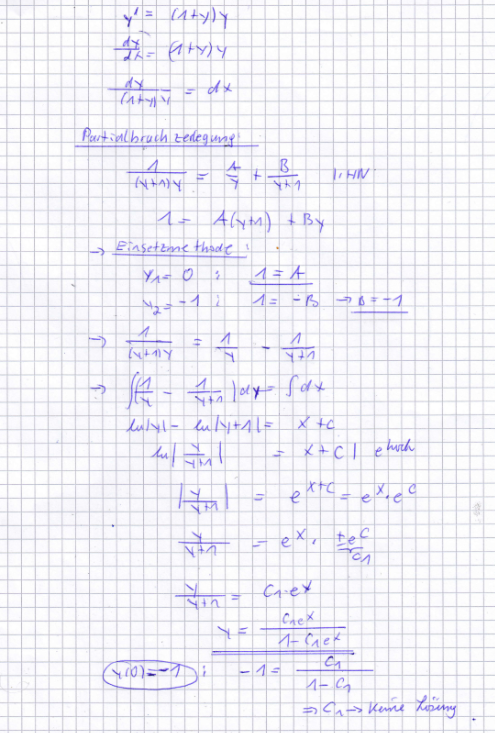 y' = (1+y)y
dy/dx = (1+y)y
dy/((1+y)y) = dx
Partialbruchzerlegung:
1/((y+1)y) = A/y + B/(y+1) | · HN
1 = A(y+1) + By
→ Einsetzmethode:
y₁ = 0 : 1 = A
y₂ = -1 : 1 = -B → B = -1
→ 1/((y+1)y) = 1/y - 1/(y+1)
→ ∫(1/y - 1/(y+1)) dy = ∫dx
ln|y| - ln|y+1| = x + C
ln|y/(y+1)| = x + C | e hoch
|y/(y+1)| = e^(x+C) = e^x · e^C
y/(y+1) = e^x · ±e^C
C₁
y/(y+1) = C₁·e^x
y = C₁e^x/(1-C₁e^x)
y(0) = -1 : -1 = C₁/(1-C₁)
⇒ C₁ → keine Lösung